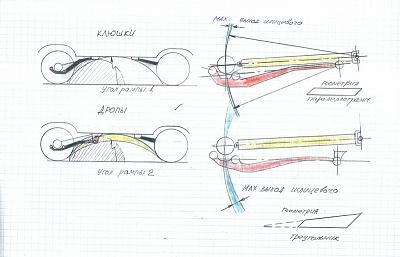 КЛЮШКИ
УГОЛ РАМПЫ 1
ДРОПЫ
УГОЛ РАМПЫ 2
MAX. ВЫХОД ШЛИЦЕВОГО
ГЕОМЕТРИЯ
ПАРАЛЛЕЛОГРАМ.
MAX ВЫХОД ШЛИЦЕВОГО
ГЕОМЕТРИЯ
ТРЕУГОЛЬНИК